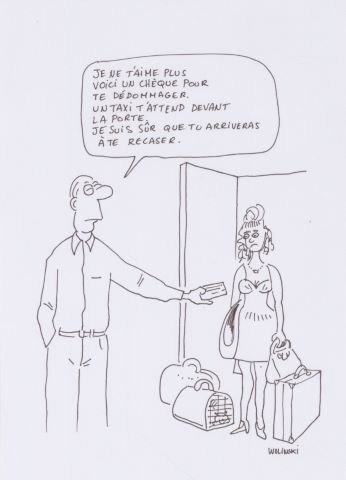 JE NE T'AIME PLUS
VOICI UN CHÈQUE POUR
TE DÉDOMMAGER.
UN TAXI T'ATTEND DEVANT
LA PORTE.
JE SUIS SÛR QUE TU ARRIVERAS
À TE RECASER.
WOLINSKI